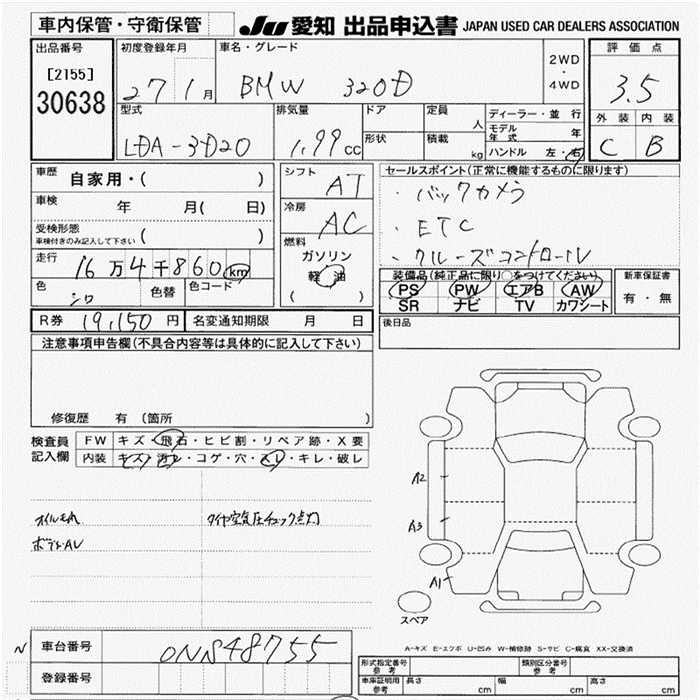 車内保管・守衛保管
JU 愛知 出品申込書 JAPAN USED CAR DEALERS ASSOCIATION
出品番号
[2155]
30638
初度登録年月
27 1月
車名・グレード
BMW 320D
2WD
・
4WD
評価点
3.5
外装 内装
C B
型式
LDA-3D20
排気量
1.99cc
ドア
形状
定員 人
積載 kg
ディーラー・並行
モデル年式 年
ハンドル 左・右
車歴 自家用・( )
車検 年 月( 日)
受検形態
車検付きのみ記入して下さい ( )
走行 16万4千860km
色 シロ
色替
色コード
シフト AT
冷房 AC
燃料
ガソリン
軽油
( )
セールスポイント(正常に機能するものに限ります)
・バックカメラ
・ETC
・クルーズコントロール
装備品(純正品に限り○をつけてください)
PS PW エアB AW
SR ナビ TV カワシート
新車保証書
有・無
R券 19,150円
名変通知期限 月 日
後日品
注意事項申告欄(不具合内容等は具体的に記入して下さい)
修復歴 有 (箇所 )
検査員記入欄
FW キズ・飛石・ヒビ割・リペア跡・X要
内装 キズ・汚レ・コゲ・穴・スレ・キレ・破レ
オイルもれ
タイヤ空気圧チェック点灯
A2
A3
A1
スペア
A-キズ E-エクボ U-凹み W-補修跡 S-サビ C-腐食 XX-交換済
N 車台番号 0NS48755
登録番号
形式指定番号
参考
類別区分番号
参考
車庫証明用
参考
長さ cm 幅 cm 高さ cm